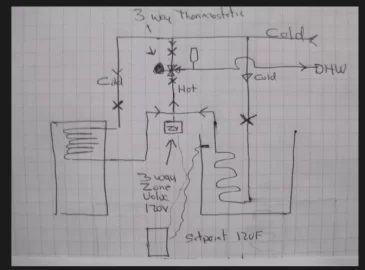 3 way Thermostatic
Cold
DHW
Cold
Cold
Hot
ZV
3 way
Zone
Valve
120V
Setpoint 120F